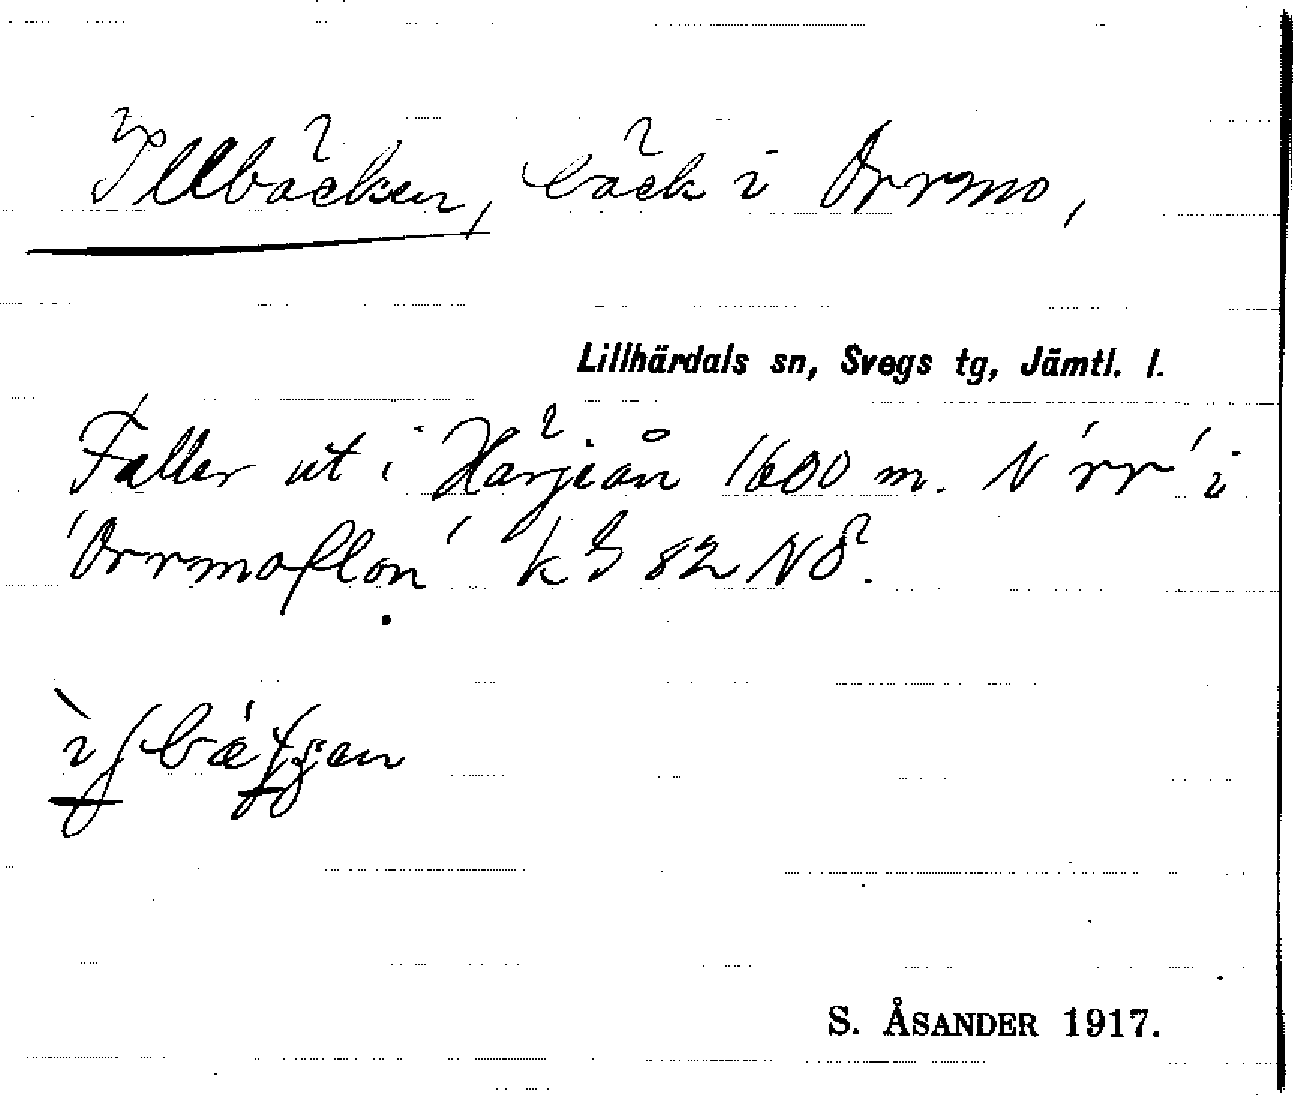 Illbäcken, bäck i Orrmo,
Lillhärdals sn, Svegs tg, Jämtl. l.
Faller ut i Härjeån 1600 m. N 'rr' i
'Orrmoflon' 82 NÖ.
S. ÅSANDER 1917.